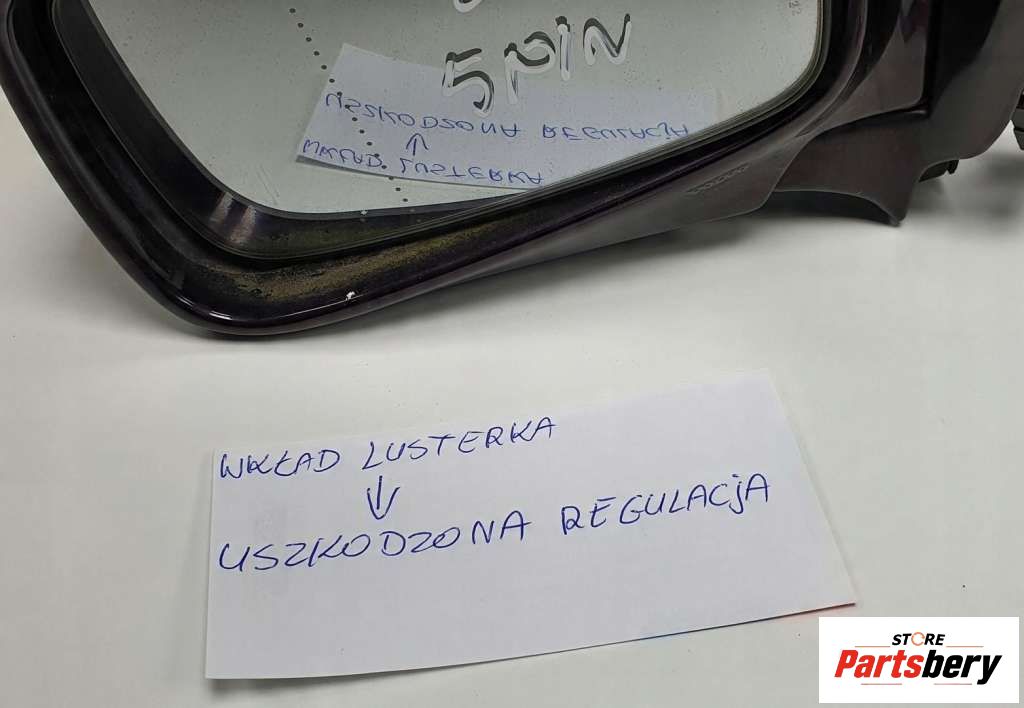 5 PIN
WKŁAD LUSTERKA
↓
USZKODZONA REGULACJA
STORE
Partsbery